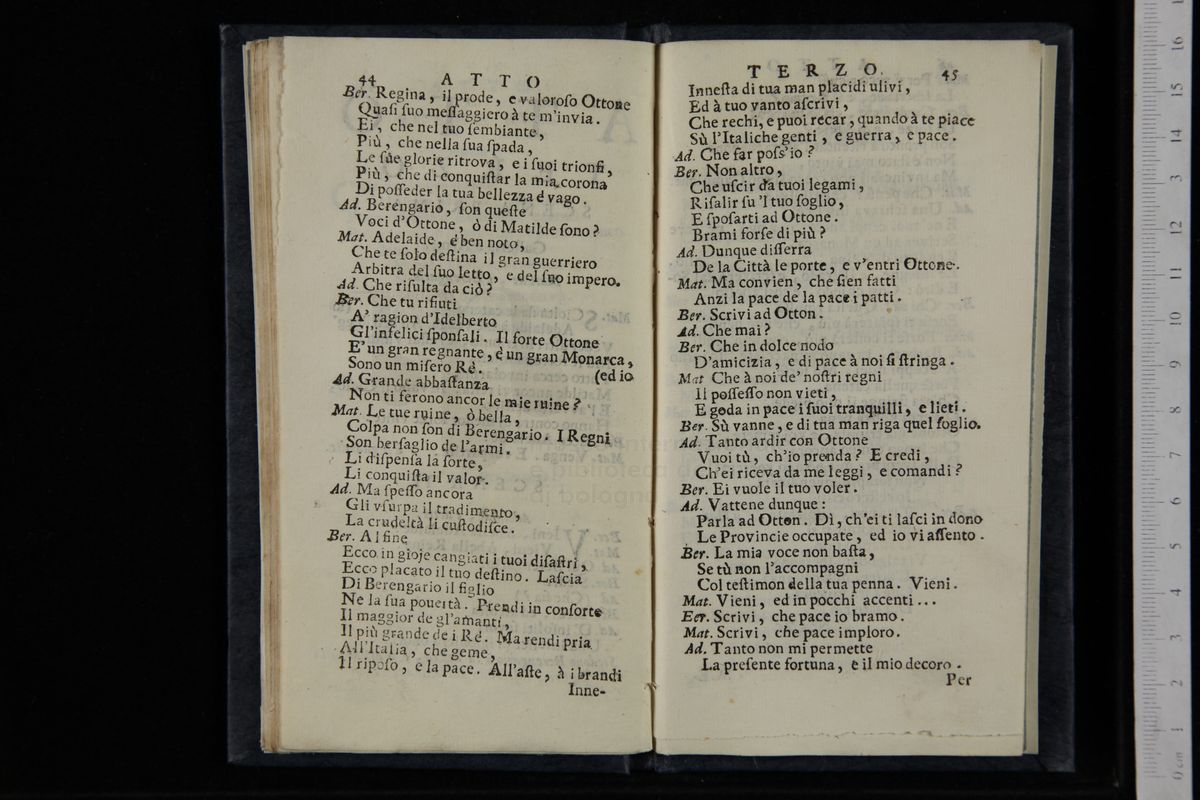 44 ATTO
Ber. Regina, il prode, e valoroſo Ottone
Quaſi ſuo meſſaggiero à te m'invia.
Ei, che nel tuo ſembiante,
Più, che nella ſua ſpada,
Le ſue glorie ritrova, e i ſuoi trionfi,
Più, che di conquiſtar la mia corona
Di poſſeder la tua bellezza é vago.
Ad. Berengario, ſon queſte
Voci d'Ottone, ò di Matilde ſono?
Mat. Adelaide, é ben noto,
Che te ſolo deſtina il gran guerriero
Arbitra del ſuo letto, e del ſuo impero.
Ad. Che riſulta da ciò?
Ber. Che tu rifiuti
A' ragion d'Idelberto
Gl'infelici ſponſali. Il forte Ottone
E' un gran regnante, è un gran Monarca,
Sono un miſero Ré. (ed io
Ad. Grande abbaſtanza
Non ti ferono ancor le mie ruine?
Mat. Le tue ruine, ò bella,
Colpa non ſon di Berengario. I Regni
Son berſaglio de l'armi.
Li diſpenſa la ſorte,
Li conquiſta il valor.
Ad. Ma ſpeſſo ancora
Gli vſurpa il tradimento,
La crudeltà li cuſtodiſce.
Ber. Al fine
Ecco in gioje cangiati i tuoi diſaſtri,
Ecco placato il tuo deſtino. Laſcia
Di Berengario il figlio
Ne la ſua pouertà. Prendi in conſorte
Il maggior de gl'amanti,
Il più grande de i Ré. Ma rendi pria
All'Italia, che geme,
Il ripoſo, e la pace. All'aſte, à i brandi
Inne-
TERZO. 45
Inneſta di tua man placidi ulivi,
Ed à tuo vanto aſcrivi,
Che rechi, e puoi recar, quando à te piace
Sù l'Italiche genti, e guerra, e pace.
Ad. Che far poſs'io?
Ber. Non altro,
Che uſcir da tuoi legami,
Riſalir ſu 'l tuo ſoglio,
E ſpoſarti ad Ottone.
Brami forſe di più?
Ad. Dunque diſſerra
De la Città le porte, e v'entri Ottone.
Mat. Ma convien, che ſien fatti
Anzi la pace de la pace i patti.
Ber. Scrivi ad Otton.
Ad. Che mai?
Ber. Che in dolce nodo
D'amicizia, e di pace à noi ſi ſtringa.
Mat Che à noi de' noſtri regni
Il poſſeſſo non vieti,
E goda in pace i ſuoi tranquilli, e lieti.
Ber. Sù vanne, e di tua man riga quel foglio.
Ad. Tanto ardir con Ottone
Vuoi tù, ch'io prenda? E credi,
Ch'ei riceva da me leggi, e comandi?
Ber. Ei vuole il tuo voler.
Ad. Vattene dunque:
Parla ad Otton. Dì, ch'ei ti laſci in dono
Le Provincie occupate, ed io vi aſſento.
Ber. La mia voce non baſta,
Se tù non l'accompagni
Col teſtimon della tua penna. Vieni.
Mat. Vieni, ed in pocchi accenti...
Eer. Scrivi, che pace io bramo.
Mat. Scrivi, che pace imploro.
Ad. Tanto non mi permette
La preſente fortuna, e il mio decoro.
Per